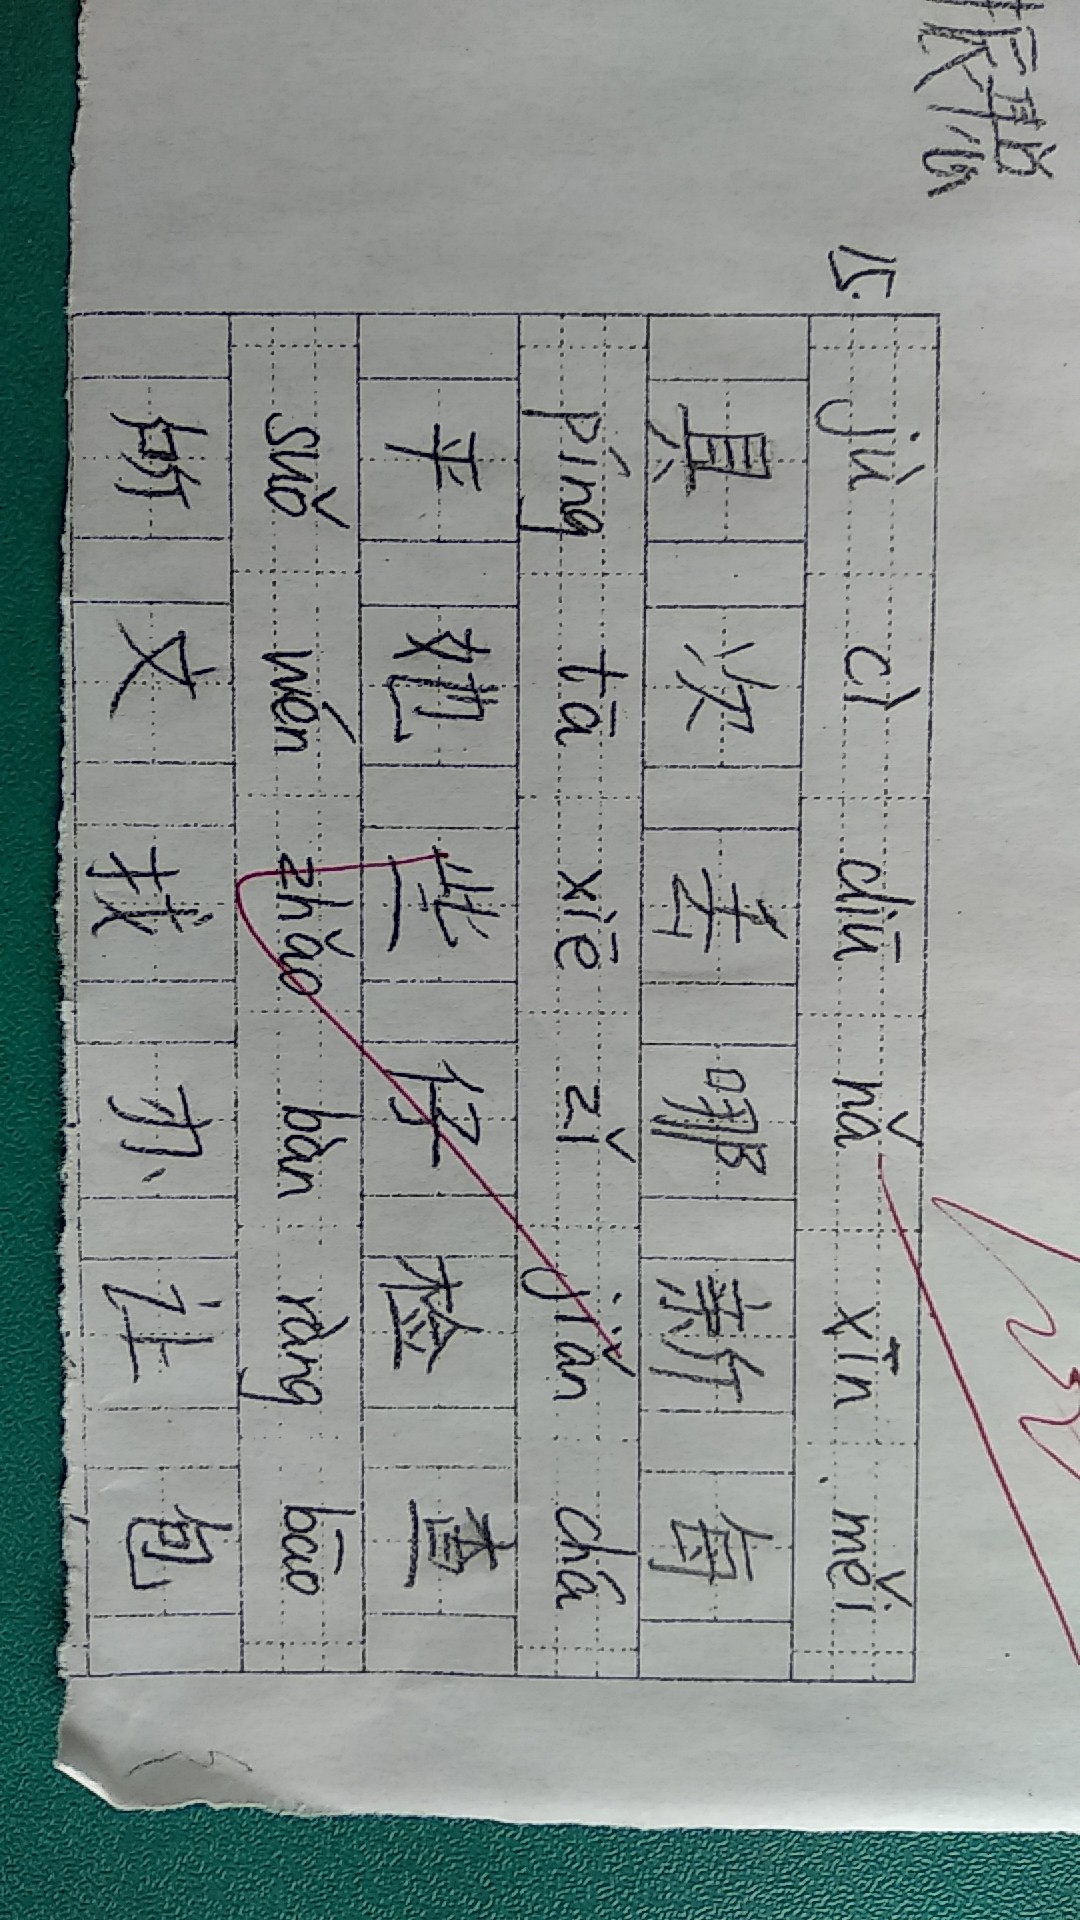 15.
jù cì diū nǎ xīn měi
具 次 丢 哪 新 每
píng tā xiē zǐ jiǎn chá
平 她 些 仔 检 查
suǒ wén zhǎo bàn ràng bāo
所 文 找 办 让 包